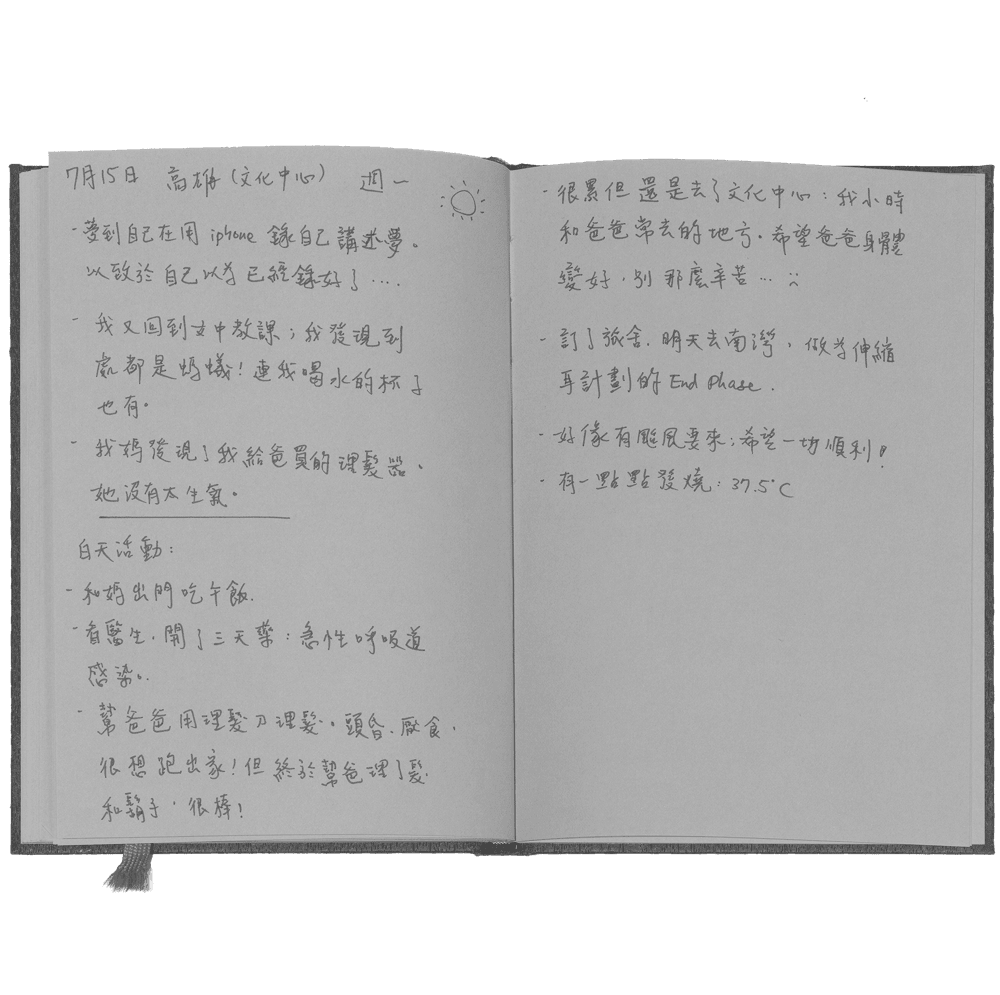 7月15日 高雄(文化中心) 週一
- 夢到自己在用 iphone 錄自己講述夢。
以致於自己以為已經錄好了....
- 我又回到文中教課；我發現到
處都是螞蟻！連我喝水的杯子
也有。
- 我媽發現了我給爸買的理髮器。
她沒有太生氣。
白天活動：
- 和媽出門吃午飯.
- 看醫生，開了三天藥：急性呼吸道
感染。
- 幫爸爸用理髮刀理髮。頭昏、厭食，
很想跑出家！但終於幫爸理了髮
和鬍子，很棒！
- 很累但還是去了文化中心：我小時
和爸爸常去的地方。希望爸爸身體
變好，別那麼辛苦... :(
- 訂了旅舍，明天去南灣，做為伸縮
耳計劃的 End Phase.
- 好像有颱風要來；希望一切順利！
- 有一點點發燒：37.5°C